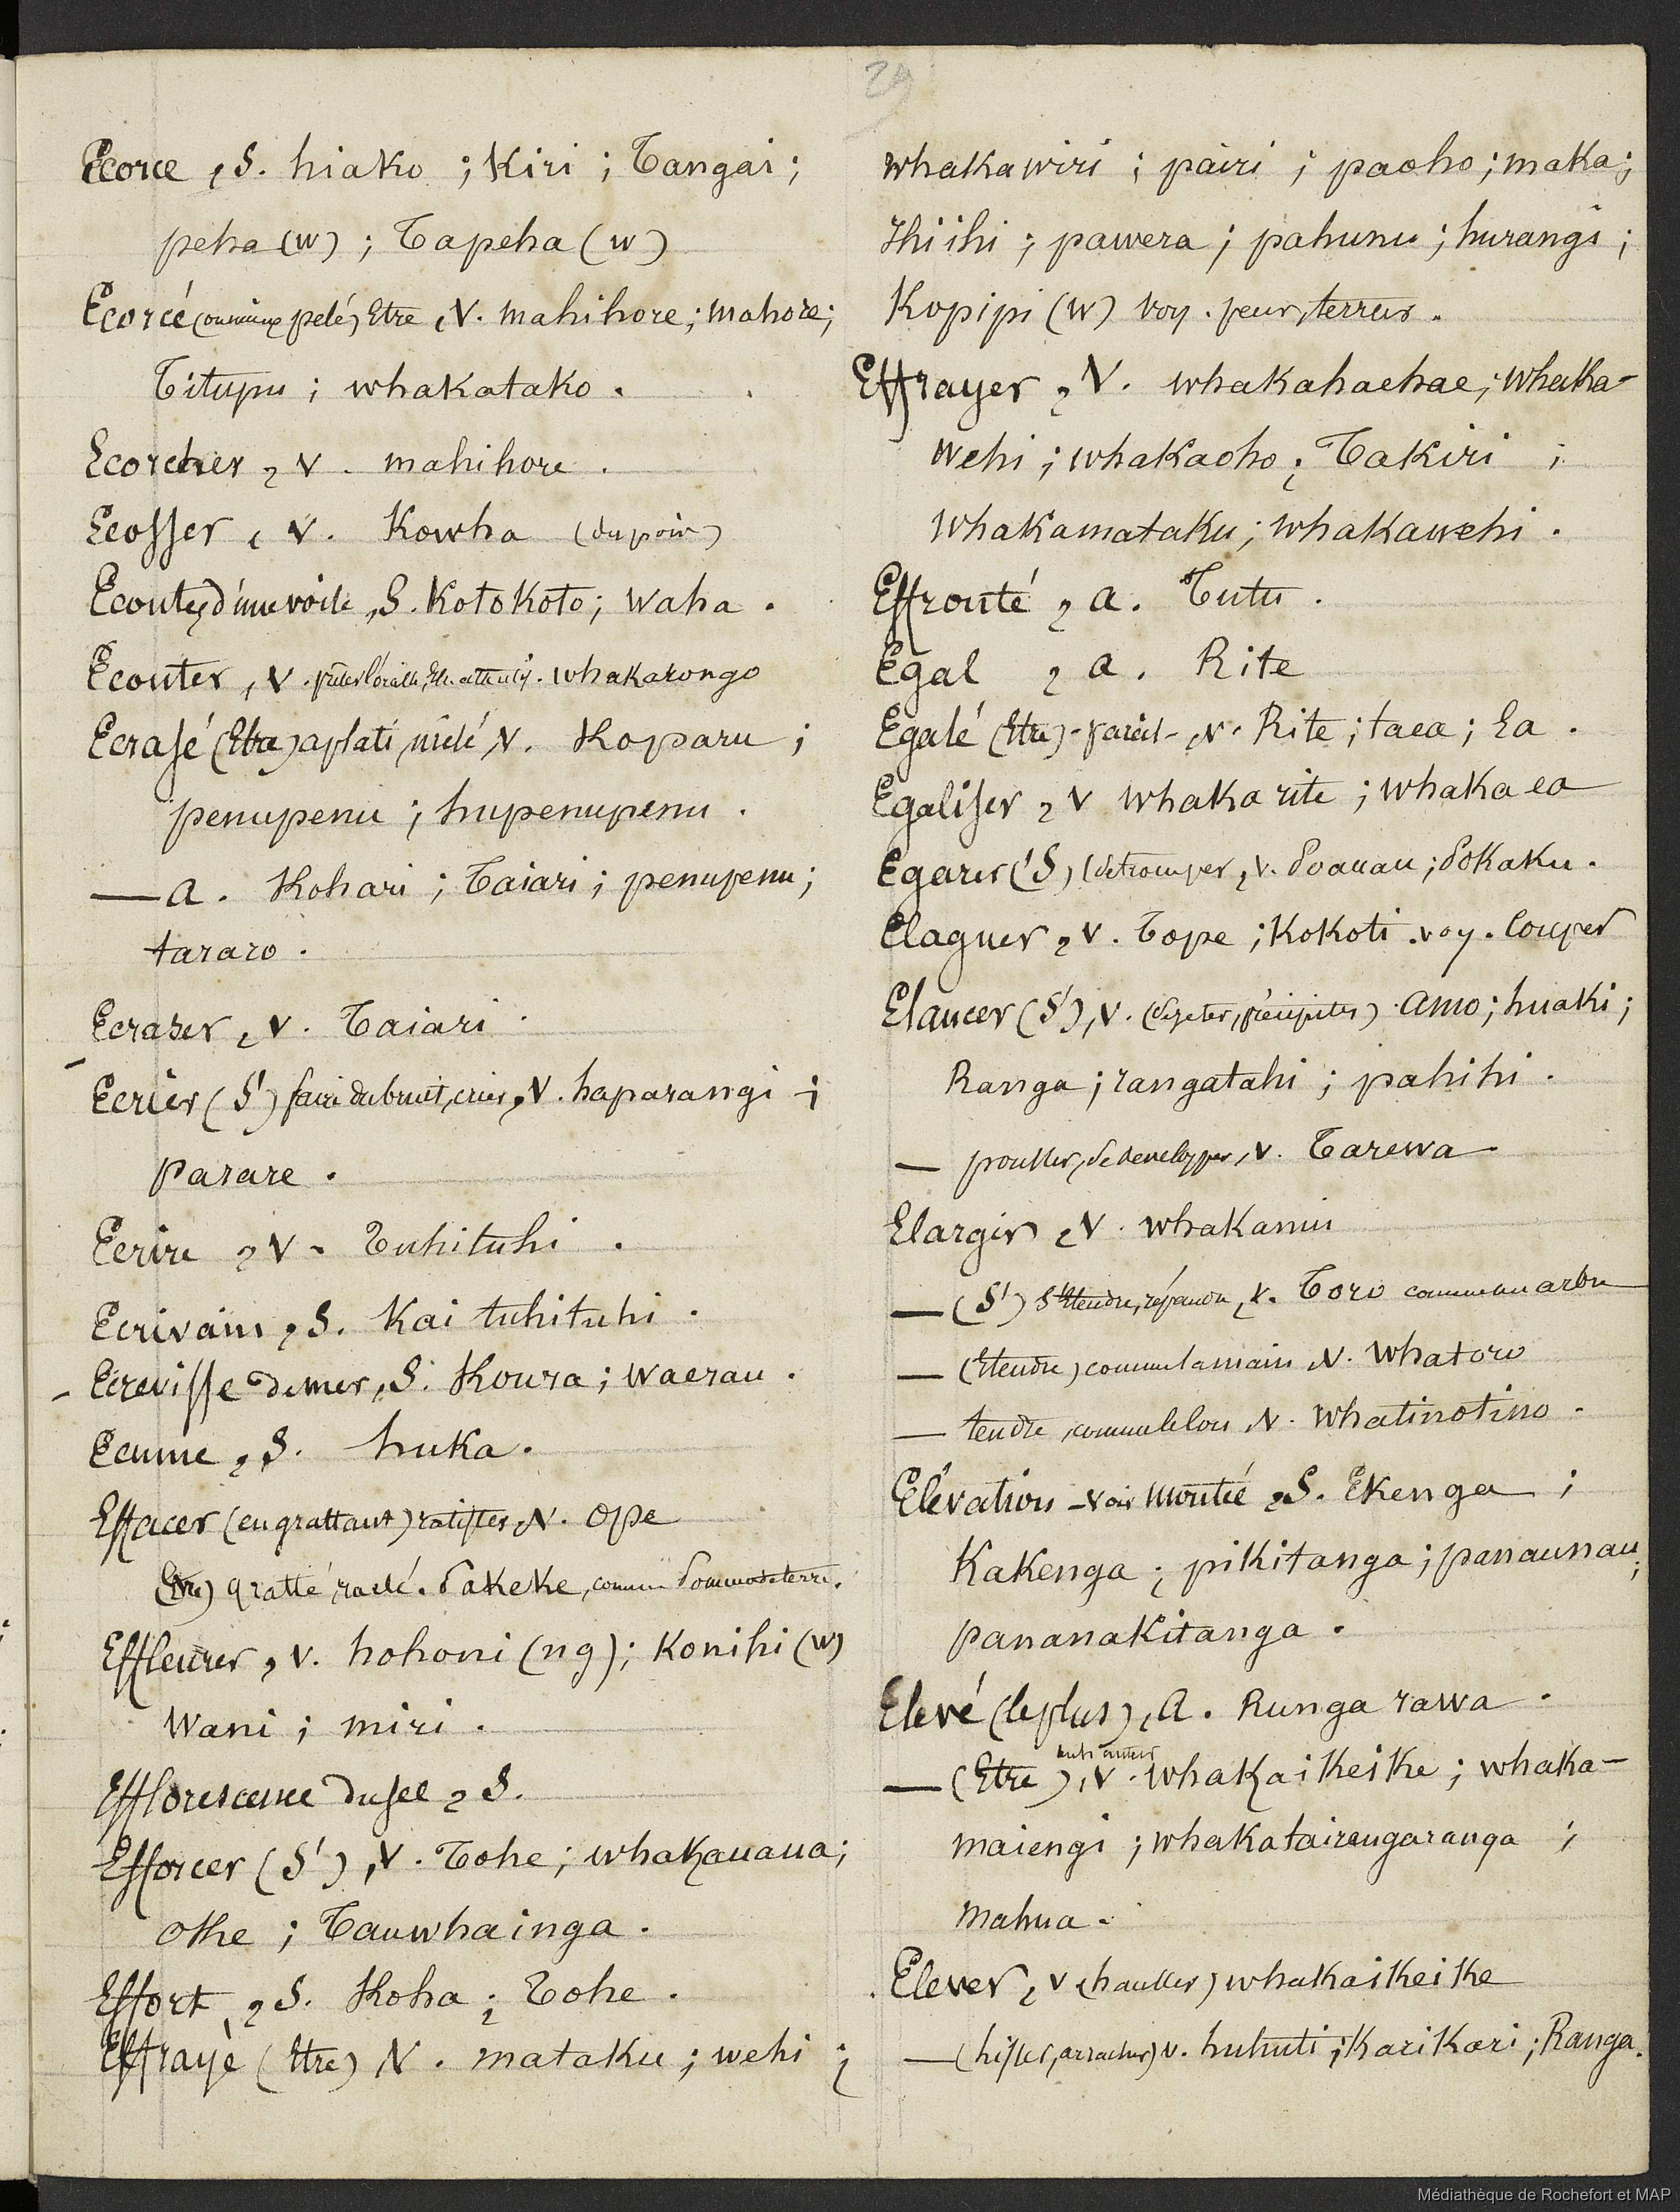 29
Ecorce, S. hiako ; Kiri ; Tangai ;
peha (w) ; Tapeha (w)
Ecorcé (ou pelé) Etre, V. mahihore ; mahore ;
Titupu ; whakatako .
Ecorcher, v. mahihore .
Ecosser, v. Kowha (du pois)
Ecoute d'une voile, S. Kotokoto ; waha .
Ecouter, v. prêter l'oreille, Etre attentif. whakarongo
Ecrasé (Etre) aplati, mêlé, v. Koparu ;
penupenu ; hupenupenu .
— a. Kohari ; Taiari ; penupenu ;
tararo .
Ecraser, v. Taiari .
Ecrier (S') faire du bruit, crier, V. haparangi ;
parare .
Ecrire, v. Tuhituhi .
Ecrivain, S. Kai tuhituhi .
- Ecrevisse de mer, S. Koura ; waerau .
Ecume, S. huka .
Effacer (en grattant) ratisser, V. ope
(Etre) gratté, raclé. Pakeke, comme Pomme de terre.
Effleurer, v. hohoni (ng) ; Konihi (w)
wani ; miri .
Efflorescence du sel, S.
Efforcer (S'), V. Tohe ; whakauaua ;
ohe ; Tauwhainga .
Effort, S. Koha ; Tohe .
Effrayé (Etre) V. mataku ; wehi ;
whakawiri ; pairi ; paoho ; maka ;
Ihiihi ; pawera ; pahunu ; hurangi ;
Kopipi (w) voy. peur, terreur .
Effrayer, V. whakahaehae ; whaka-
wehi ; whakaoho ; Takiri ;
whakamataku ; whakawehi .
Effronté, a. Tutu .
Egal, a. Rite
Egalé (Etre) - pareil -, v. Rite ; taea ; Ea .
Egaliser, v whaka rite ; whaka ea
Egarer (S') (se tromper, v. Poauau ; Pokaku .
Elaguer, v. Tope ; Kokoti . voy. Couper
Elancer (S'), v. (se jeter, précipiter) . Amo ; huaki ;
Ranga ; rangatahi ; pahihi .
— pousser, se developper, v. Tarewa
Elargir, V. whakanui
— (S') S'Etendre, répandre, v. Toro comme un arbre
— (Etendre) comme la main, V. Whatoro
— tendre, comme le cou, V. Whatinotino .
Elévation - voir montée, S. Ekenga ;
Kakenga ; pikitanga ; panaunau ;
pananakitanga .
Elevé (le plus), a. Runga rawa .
— (Etre), v. whakaikeike ; whaka-
maiengi ; whakatairangaranga ;
mahua .
Elever, v (hausser) whakaikeike
— (hisser, arracher) v. huhuti ; Karikari ; Ranga .
Médiathèque de Rochefort et MAP